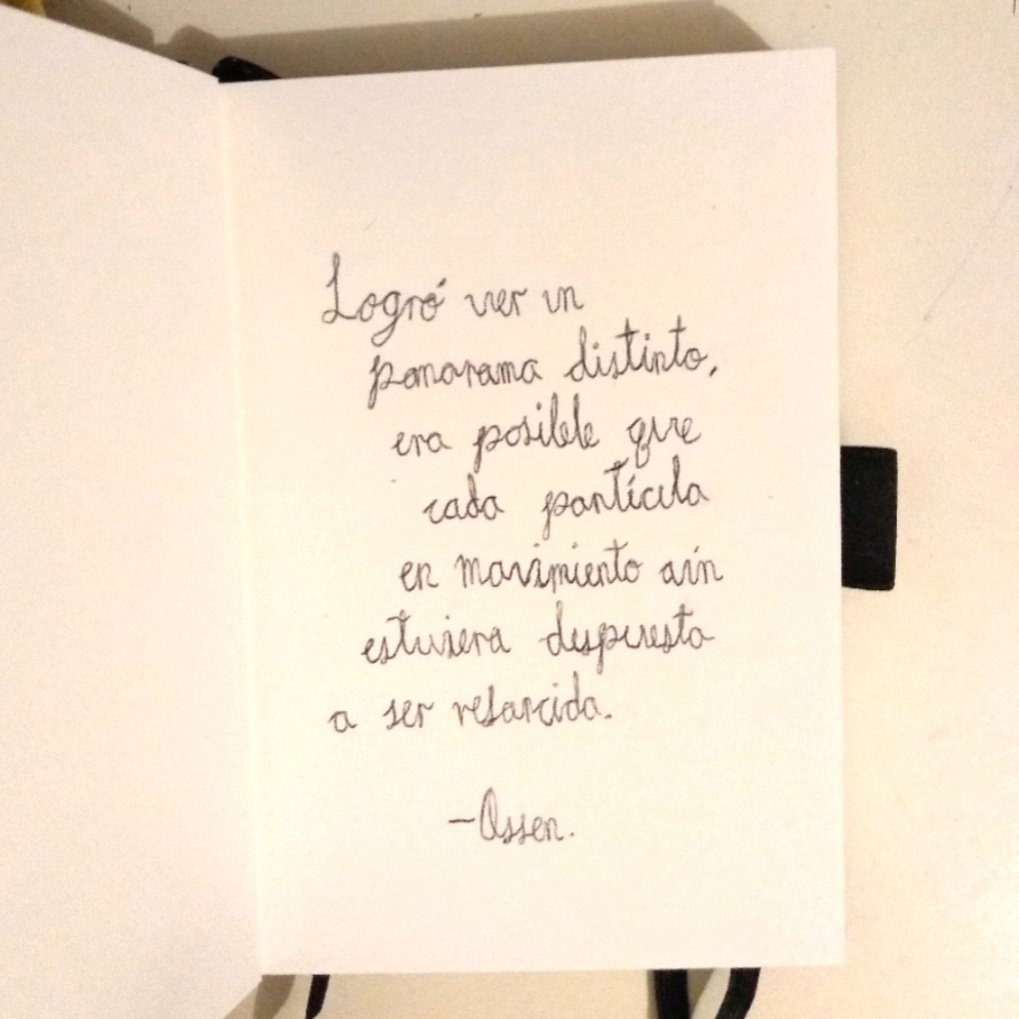 Logró ver un
panorama distinto,
era posible que
cada partícula
en movimiento aún
estuviera despuesta
a ser resarcida.
-Ossen.